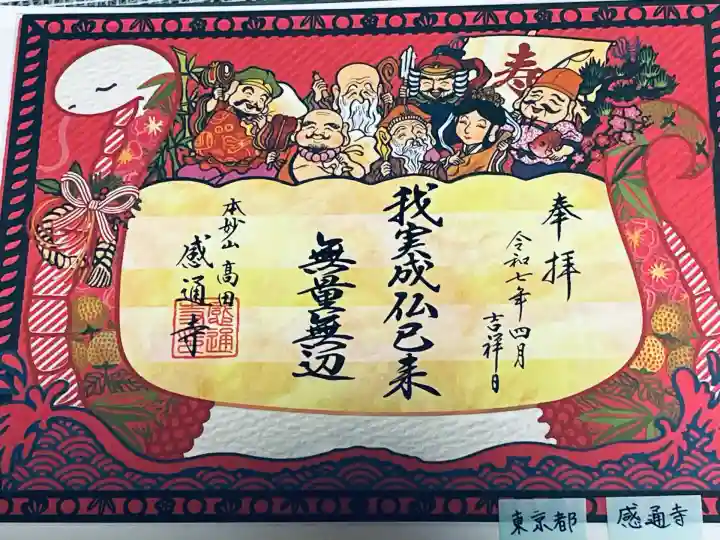 寿
奉拝
令和七年四月
吉祥日
我実成仏已来
無量無辺
本妙山 高田
感通寺
東京都
感通寺